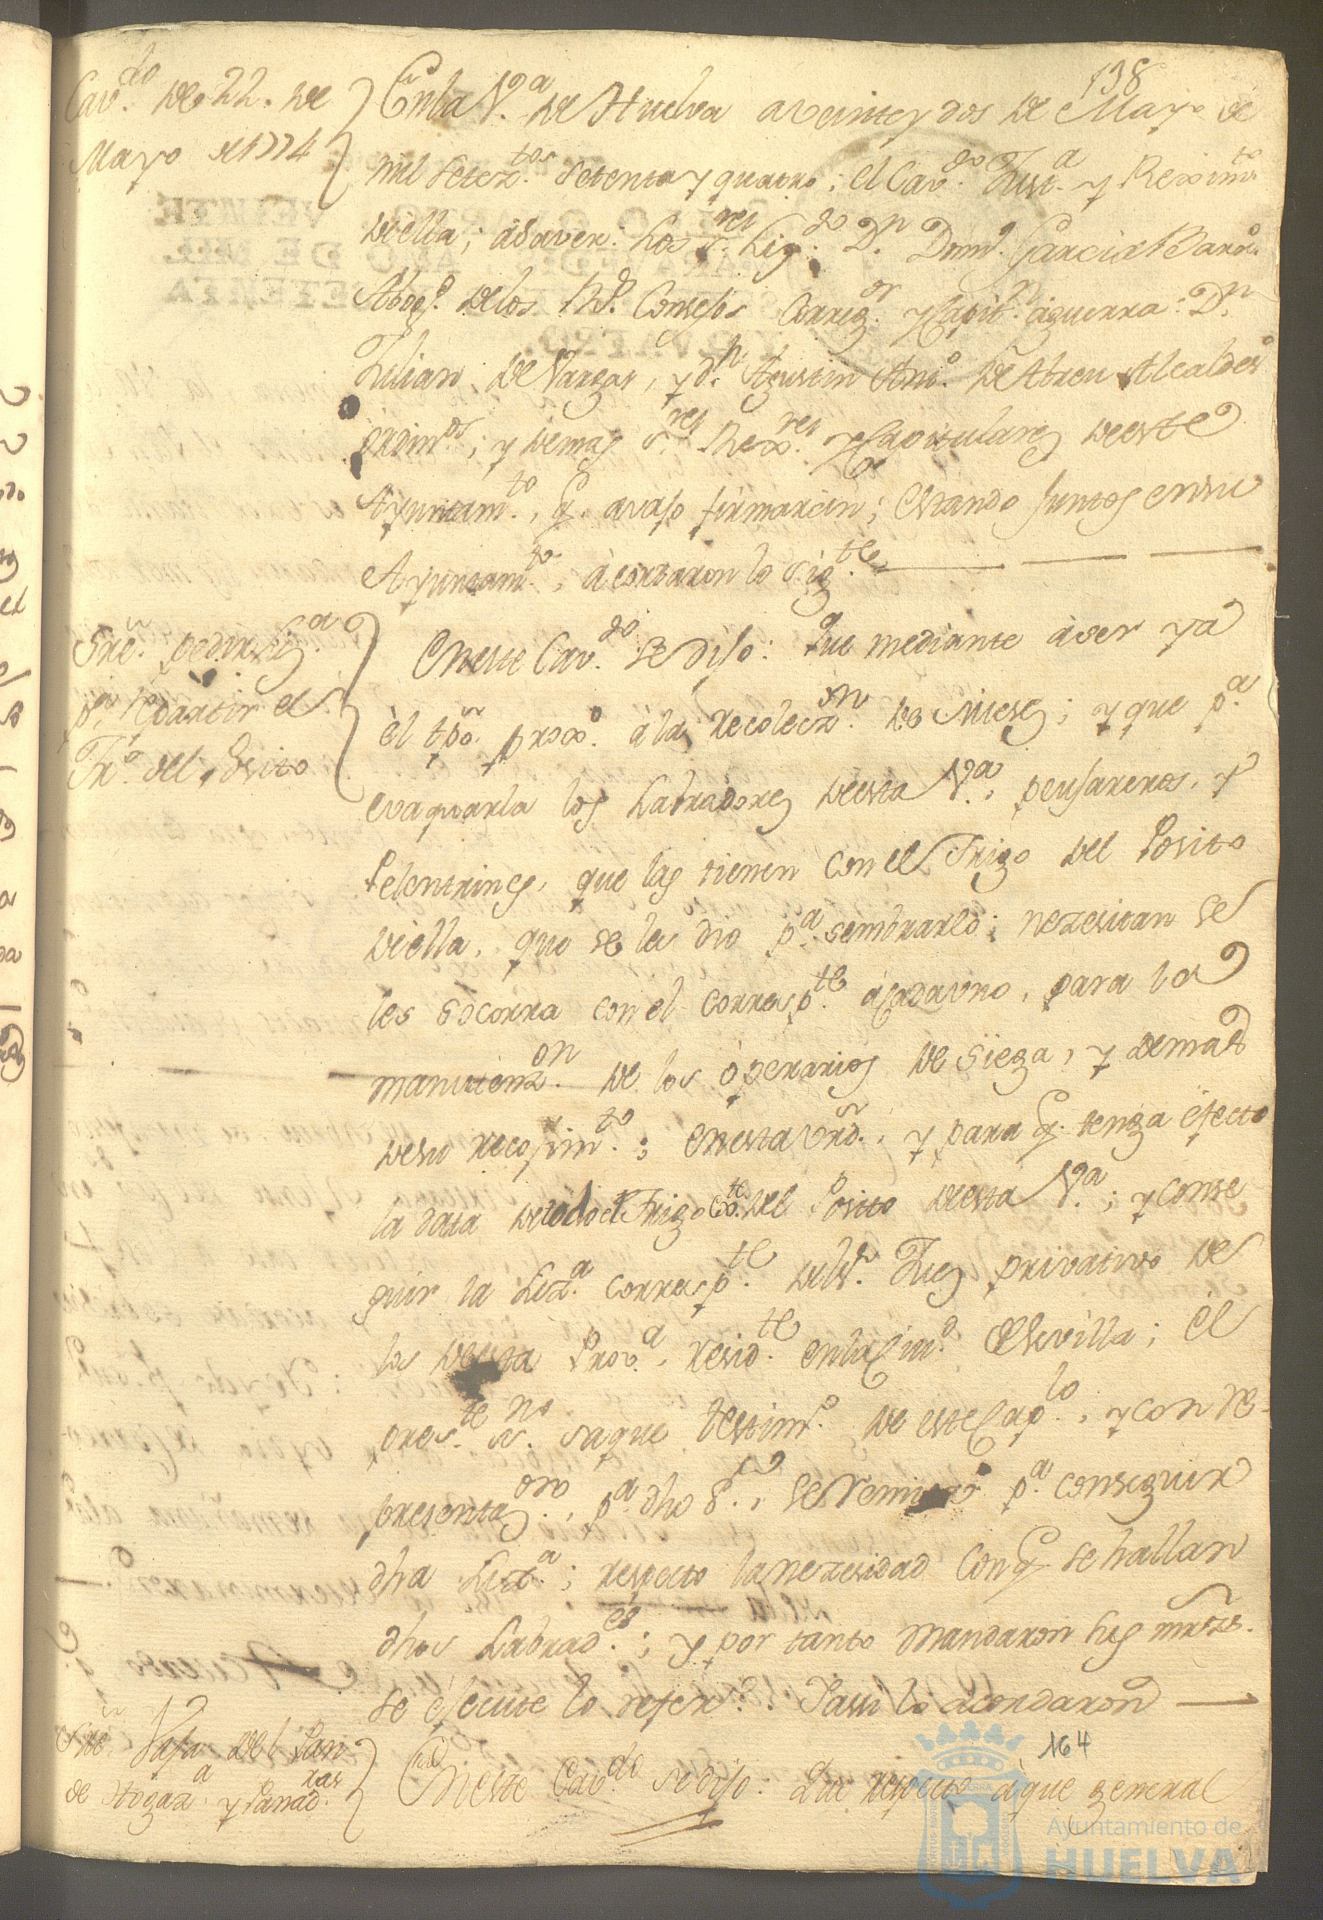 138
Cav.do de 22. de
Mayo de 1774
En la V.a de Huelva a veinte y dos de Mayo de
mil setez.tos setenta y quatro; el Cav.do Just.a y Rexim.to
de ella; a saver: Los S.res Liz.do D.n Dom.o Garcia
Abog.o de los R.s Consejos Correg.or y Capit.n a guerra: D.n
Julian de Vargas, y d.n Agustin Ant.o de Abreu Alcaldes
ordin.os; y demas S.res Rex.res y Capitulares de este
Ayuntam.to, q. avajo firmaràn; Estando juntos en su
Ayuntam.to, àcordaron lo sig.te
Sre. pedir liz.a
p.a repartir el
Tr.o del Posito
En este Cav.do se dijo: Que mediante àver ya
èl tpo. prox.o à la recolecz.on de Mieses; y que p.a
evaquarla los Labradores de esta V.a, peujareros, y
Pelentrines, que las tienen con el Trigo del Posito
de ella, que se les dio p.a sembrarlo; nezesitan se
les socorra con el corresp.te a cada uno, para la
manutenz.on de los operarios de siega, y demas
de su recojim.to; en esta vrd., y para q. tenga efecto
la data de todo el Trigo del Posito de esta V.a; y conse
guir la Liz.a corresp.te del S.r Juez privativo de
los de esta Prov.a, resid.te en la Ciu.d de Sevilla; èl
pres.te ss.no saque testim.o de este Cap.lo, y con re-
presentaz.on, p.a dho S.r, se remita p.a conseguir
dha Liz.a; respecto la nezesidad con q. se hallan
dhos Labrad.es; y por tanto mandaron sus mrzds.
se èjecute lo refer.do Y assi lo acordaron
Sre. Vaja del Pan
de Hogaz.a y Panad.ras
En este Cav.do se dijo: Que respecto à que general
164
Ayuntamiento de
HUELVA